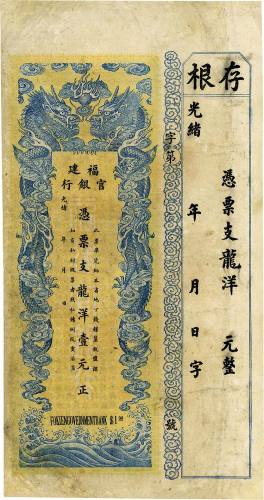 存根
光緒 年 月 日 字
憑票支龍洋 元整
字第 號
福建
官銀行
憑票支龍洋壹元正
光緒 年 月 日
FOKIEN GOVERNMENT BANK $1